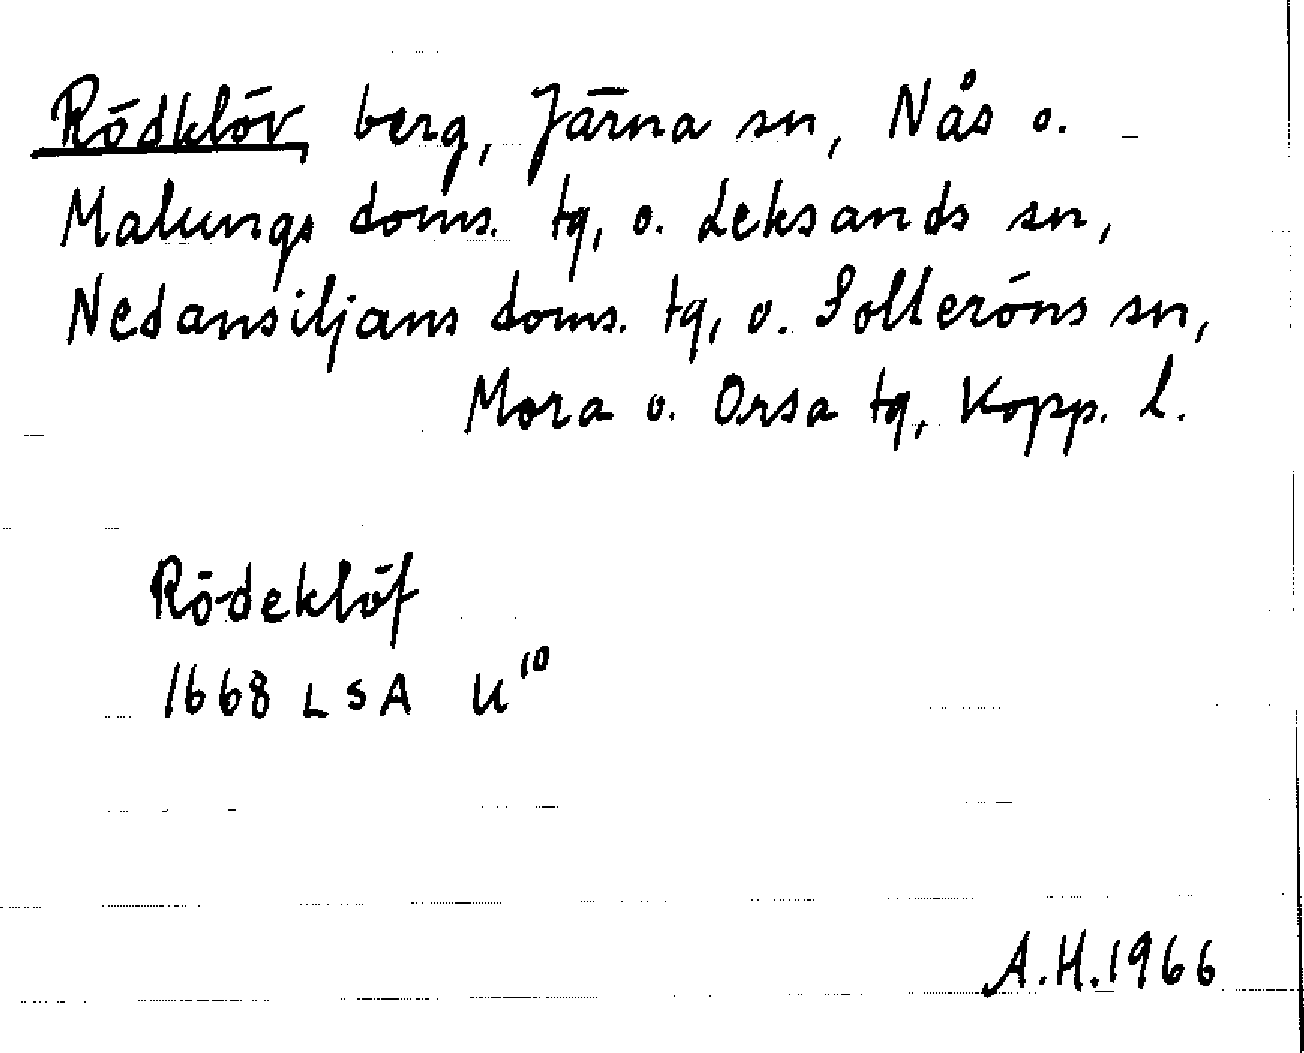 Rödklöv, berg, Järna sn, Nås o.
Malungs doms. tg, o. Leksands sn,
Nedansiljans doms. tg, o. Solleröns sn,
Mora o. Orsa tg, Kopp. l.
Rödeklöf
1668 LSA U¹⁰
A.H. 1966